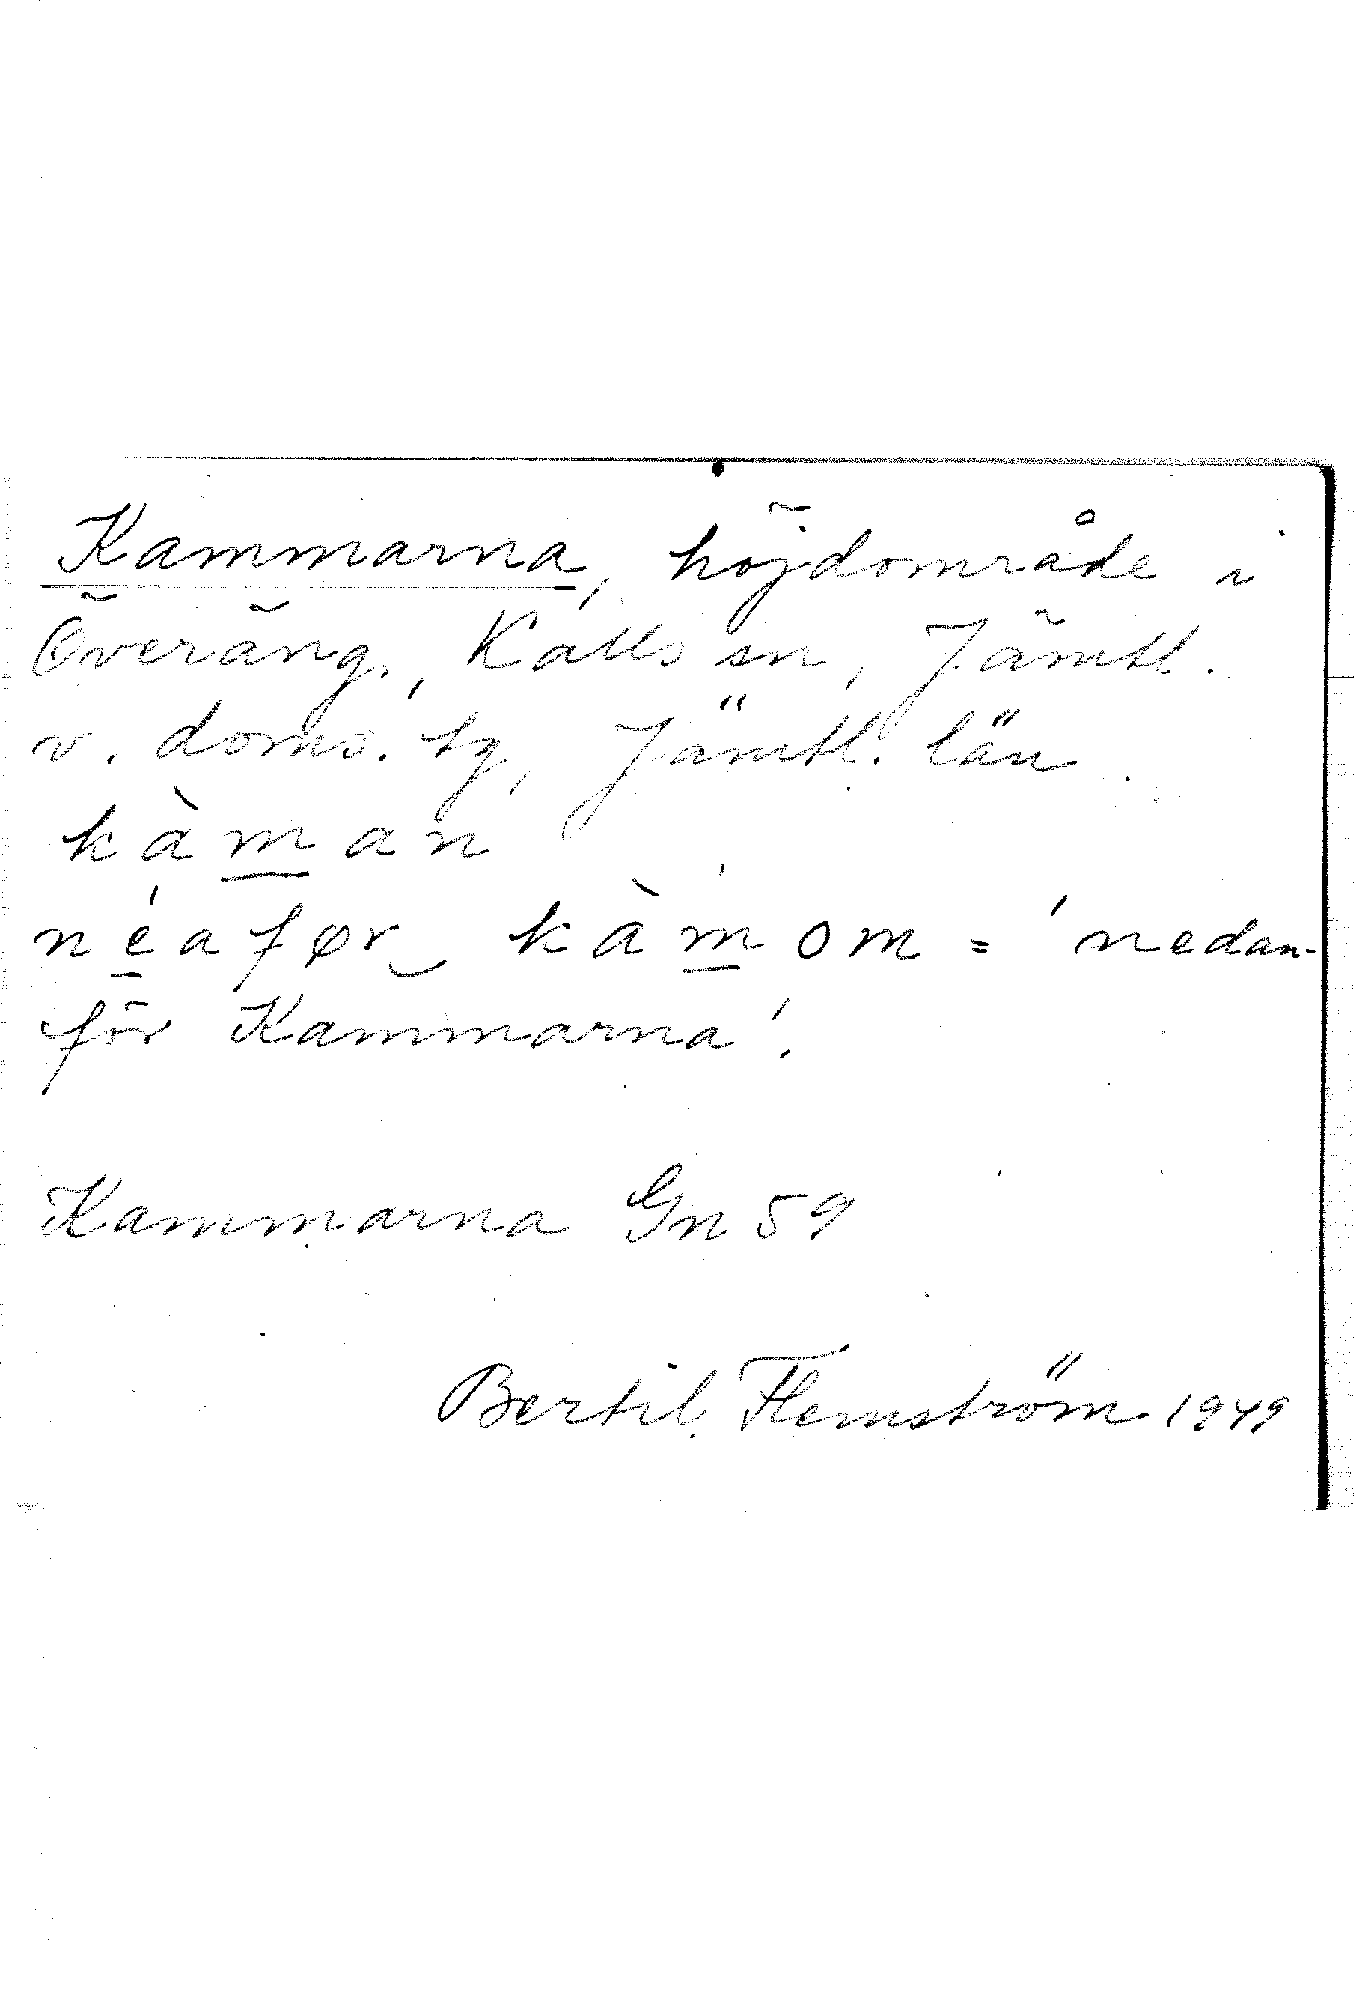 Kammarna, höjdområde i
Överäng, Kalls sn, Jämtl.
v. doms. tg, Jämtl. län
kàman
néafør kàmom = 'nedan-
för Kammarna'.
Kammarna Gn 59
Bertil Flemström 1949